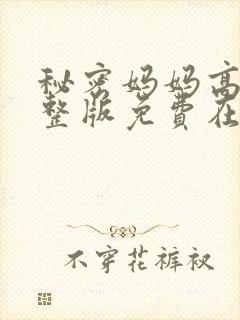 秘密妈妈高
整版免費在
不穿花裤衩